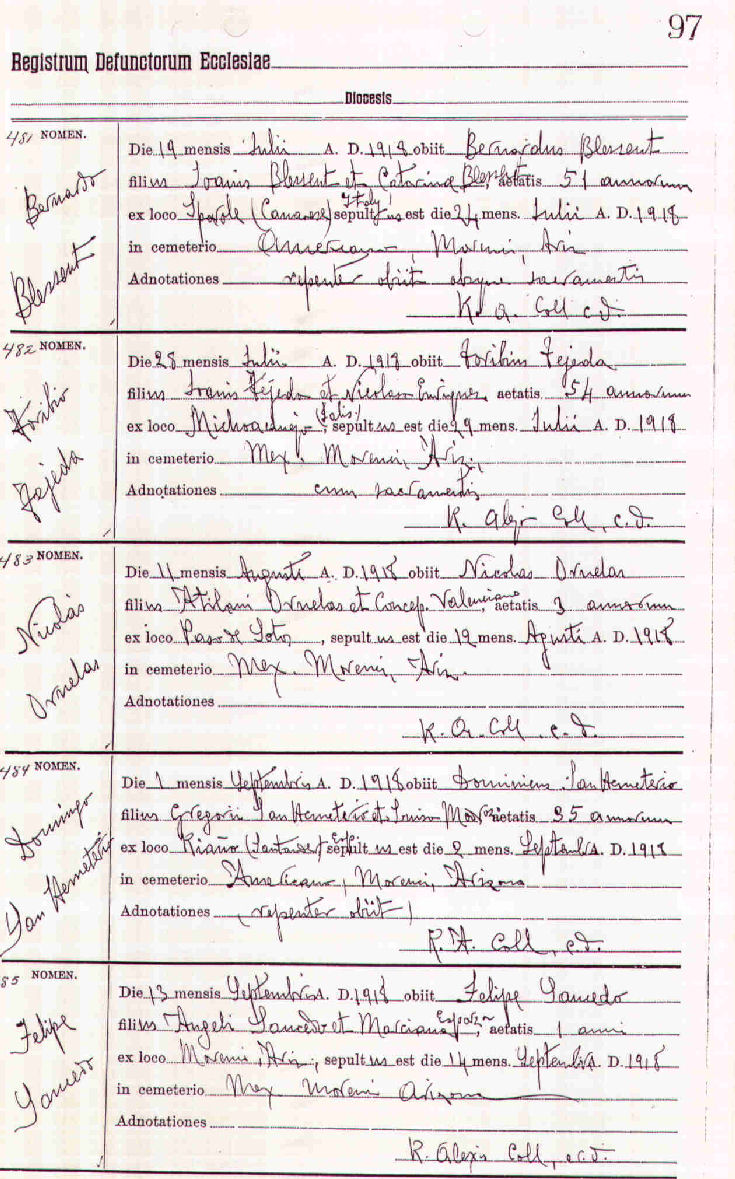 97
Registrum Defunctorum Ecclesiae
Diocesis
481 NOMEN.
Bernardo
Blessent
Die 19 mensis Julii A. D. 1918 obiit Bernardus Blessent
filius Joanis Blessent et Catarina Blessent, aetatis 51 annorum
ex loco Sparole (Canavese) Italy sepultus est die 24 mens. Julii A. D. 1918
in cemeterio Americano, Morenci, Ariz
Adnotationes repenter obiit absque sacramentis
R. A. Coll c.d.
482 NOMEN.
Toribio
Tejeda
Die 28 mensis Julii A. D. 1918 obiit Toribius Tejeda
filius Joanis Tejeda et Nicolasa Enriquez, aetatis 54 annorum
ex loco (Jalis), sepultus est die 29 mens. Julii A. D. 1918
in cemeterio Mex. Morenci, Ariz.
Adnotationes cum sacramentis
R. Coll, c.d.
483 NOMEN.
Nicolás
Ornelas
Die 11 mensis Augusti A. D. 1918 obiit Nicolas Ornelas
filius Atilani Ornelas et Concep. Valenciano, aetatis 3 annorum
ex loco Paso de Sotos, sepultus est die 12 mens. Agusti A. D. 1918
in cemeterio Mex. Morenci, Ariz.
Adnotationes
R. A. Coll. c.d.
484 NOMEN.
Domingo
San Hemeterio
Die 1 mensis Septembris A. D. 1918 obiit Dominicus San Hemeterio
filius Gregorii San Hemeterio et Luisa aetatis 35 annorum
ex loco Riaño (Santander) Esp. sepultus est die 2 mens. Septemb. A. D. 1918
in cemeterio Americano, Morenci, Arizona
Adnotationes (repenter obiit)
R. A. Coll, c.d.
85 NOMEN.
Felipe
Saucedo
Die 13 mensis Septembris A. D. 1918 obiit Felipe Saucedo
filius Angeli Saucedo et Marciana Esparza, aetatis 1 anni
ex loco Morenci, Ariz, sepultus est die 14 mens. Septembris A. D. 1918
in cemeterio Mex Morenci Arizona
Adnotationes
R. Alexis Coll, o.c.d.